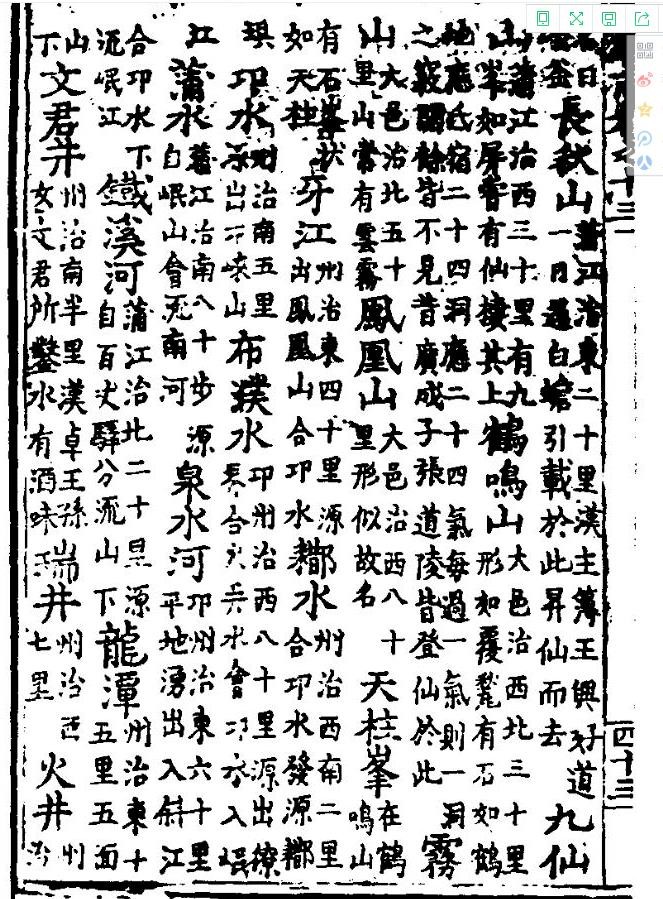 曰釜長秋山蒲江治東二十里漢主簿王興好道一日遇白蟾引載於此昇仙而去九仙
山蒲江治西三十里有九峯如屏嘗有仙棲其上鶴鳴山大邑治西北三十里形如覆甕有石如鶴
地應氐宿二十四洞應二十四氣每過一氣則一洞之竅開餘皆不見昔廣成子張道陵皆登仙於此霧
山大邑治北五十里山嘗有雲霧鳳凰山大邑治西八十里形似故名天柱峯在鶴鳴山
有石峯狀如天柱牙江州治東四十里源出鳳凰山合邛水鄀水州治西南二里合邛水發源鄀
琪邛水州治南五里源出邛崍山布濮水邛州治西八十里源出獠界合火井水會邛水入岷
江蒲水蒲江治南八十步源自岷山會流南河泉水河邛州治東六十里平地湧出入斜江
合邛水下流岷江鐵溪河蒲江治北二十里源自百丈驛分流山下龍潭州治東十五里五面
山下文君井州治南半里漢卓王孫女文君所鑿水有酒味瑞井州治西七里火井州治
十三
四十三